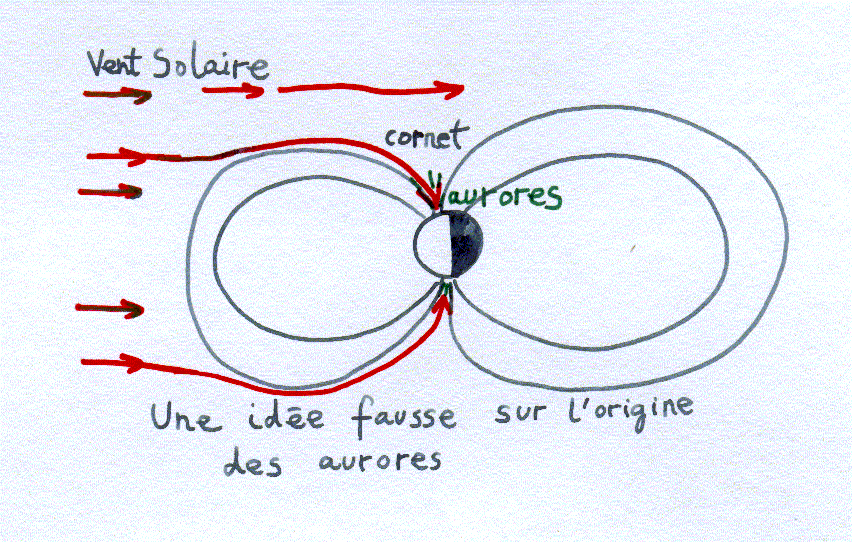 Vent Solaire
cornet
aurores
Une idēe fausse sur l'origine
des aurores